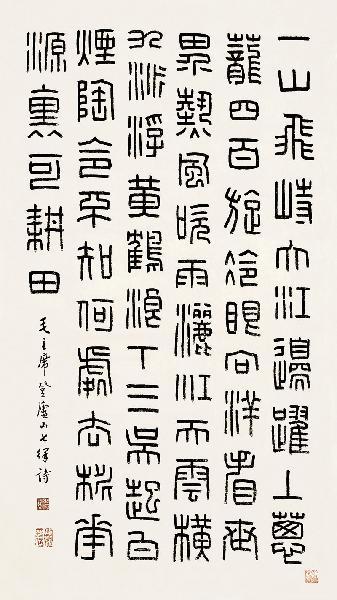 一山飛峙大江邊躍上蔥
蘢四百旋冷眼向洋看世
界熱風吹雨灑江天雲橫
九派浮黃鶴浪下三吳起白
煙陶令不知何處去桃花
源裏可耕田
毛主席登廬山七律詩